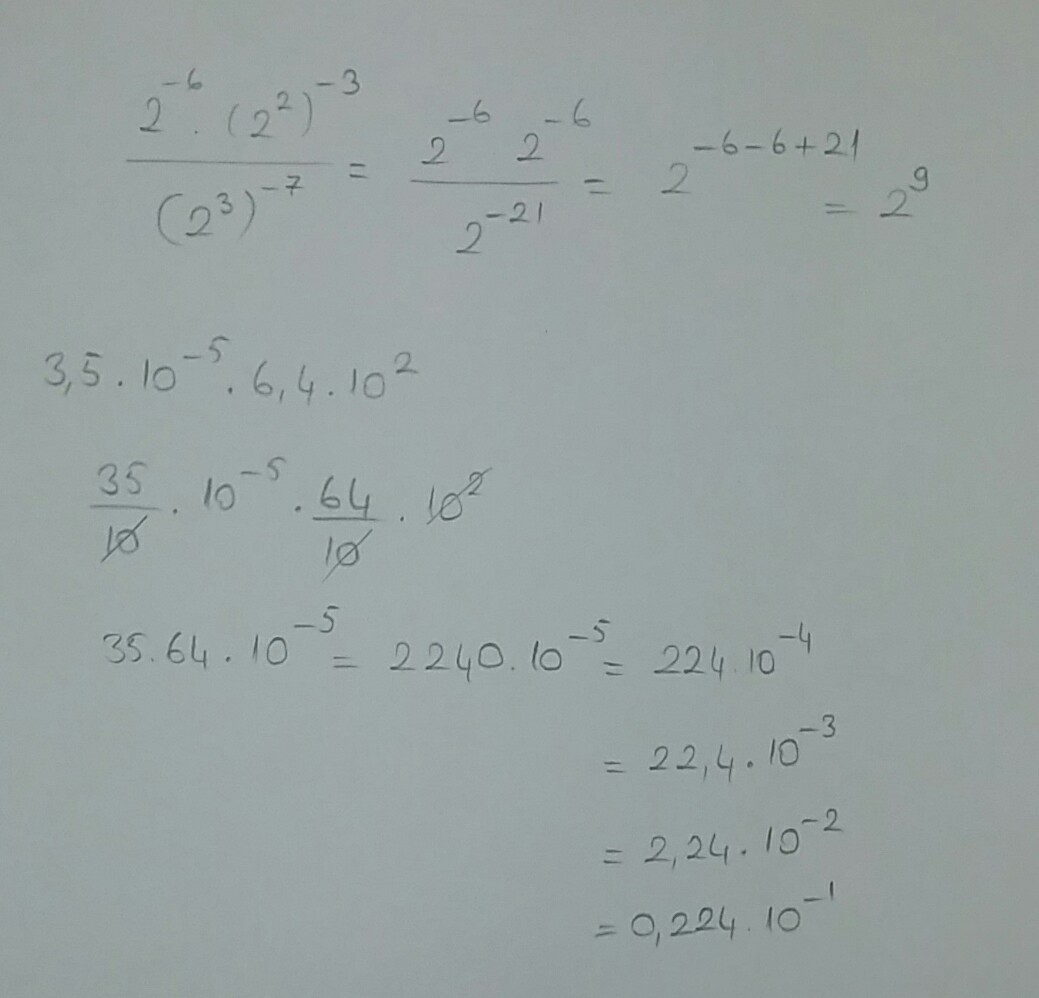 2^-6 . (2^2)^-3 / (2^3)^-7 = 2^-6 2^-6 / 2^-21 = 2^-6-6+21 = 2^9
3,5 . 10^-5 . 6,4 . 10^2
35/10 . 10^-5 . 64/10 . 10^2
35.64 . 10^-5 = 2240.10^-5 = 224.10^-4
= 22,4 . 10^-3
= 2,24 . 10^-2
= 0,224 . 10^-1